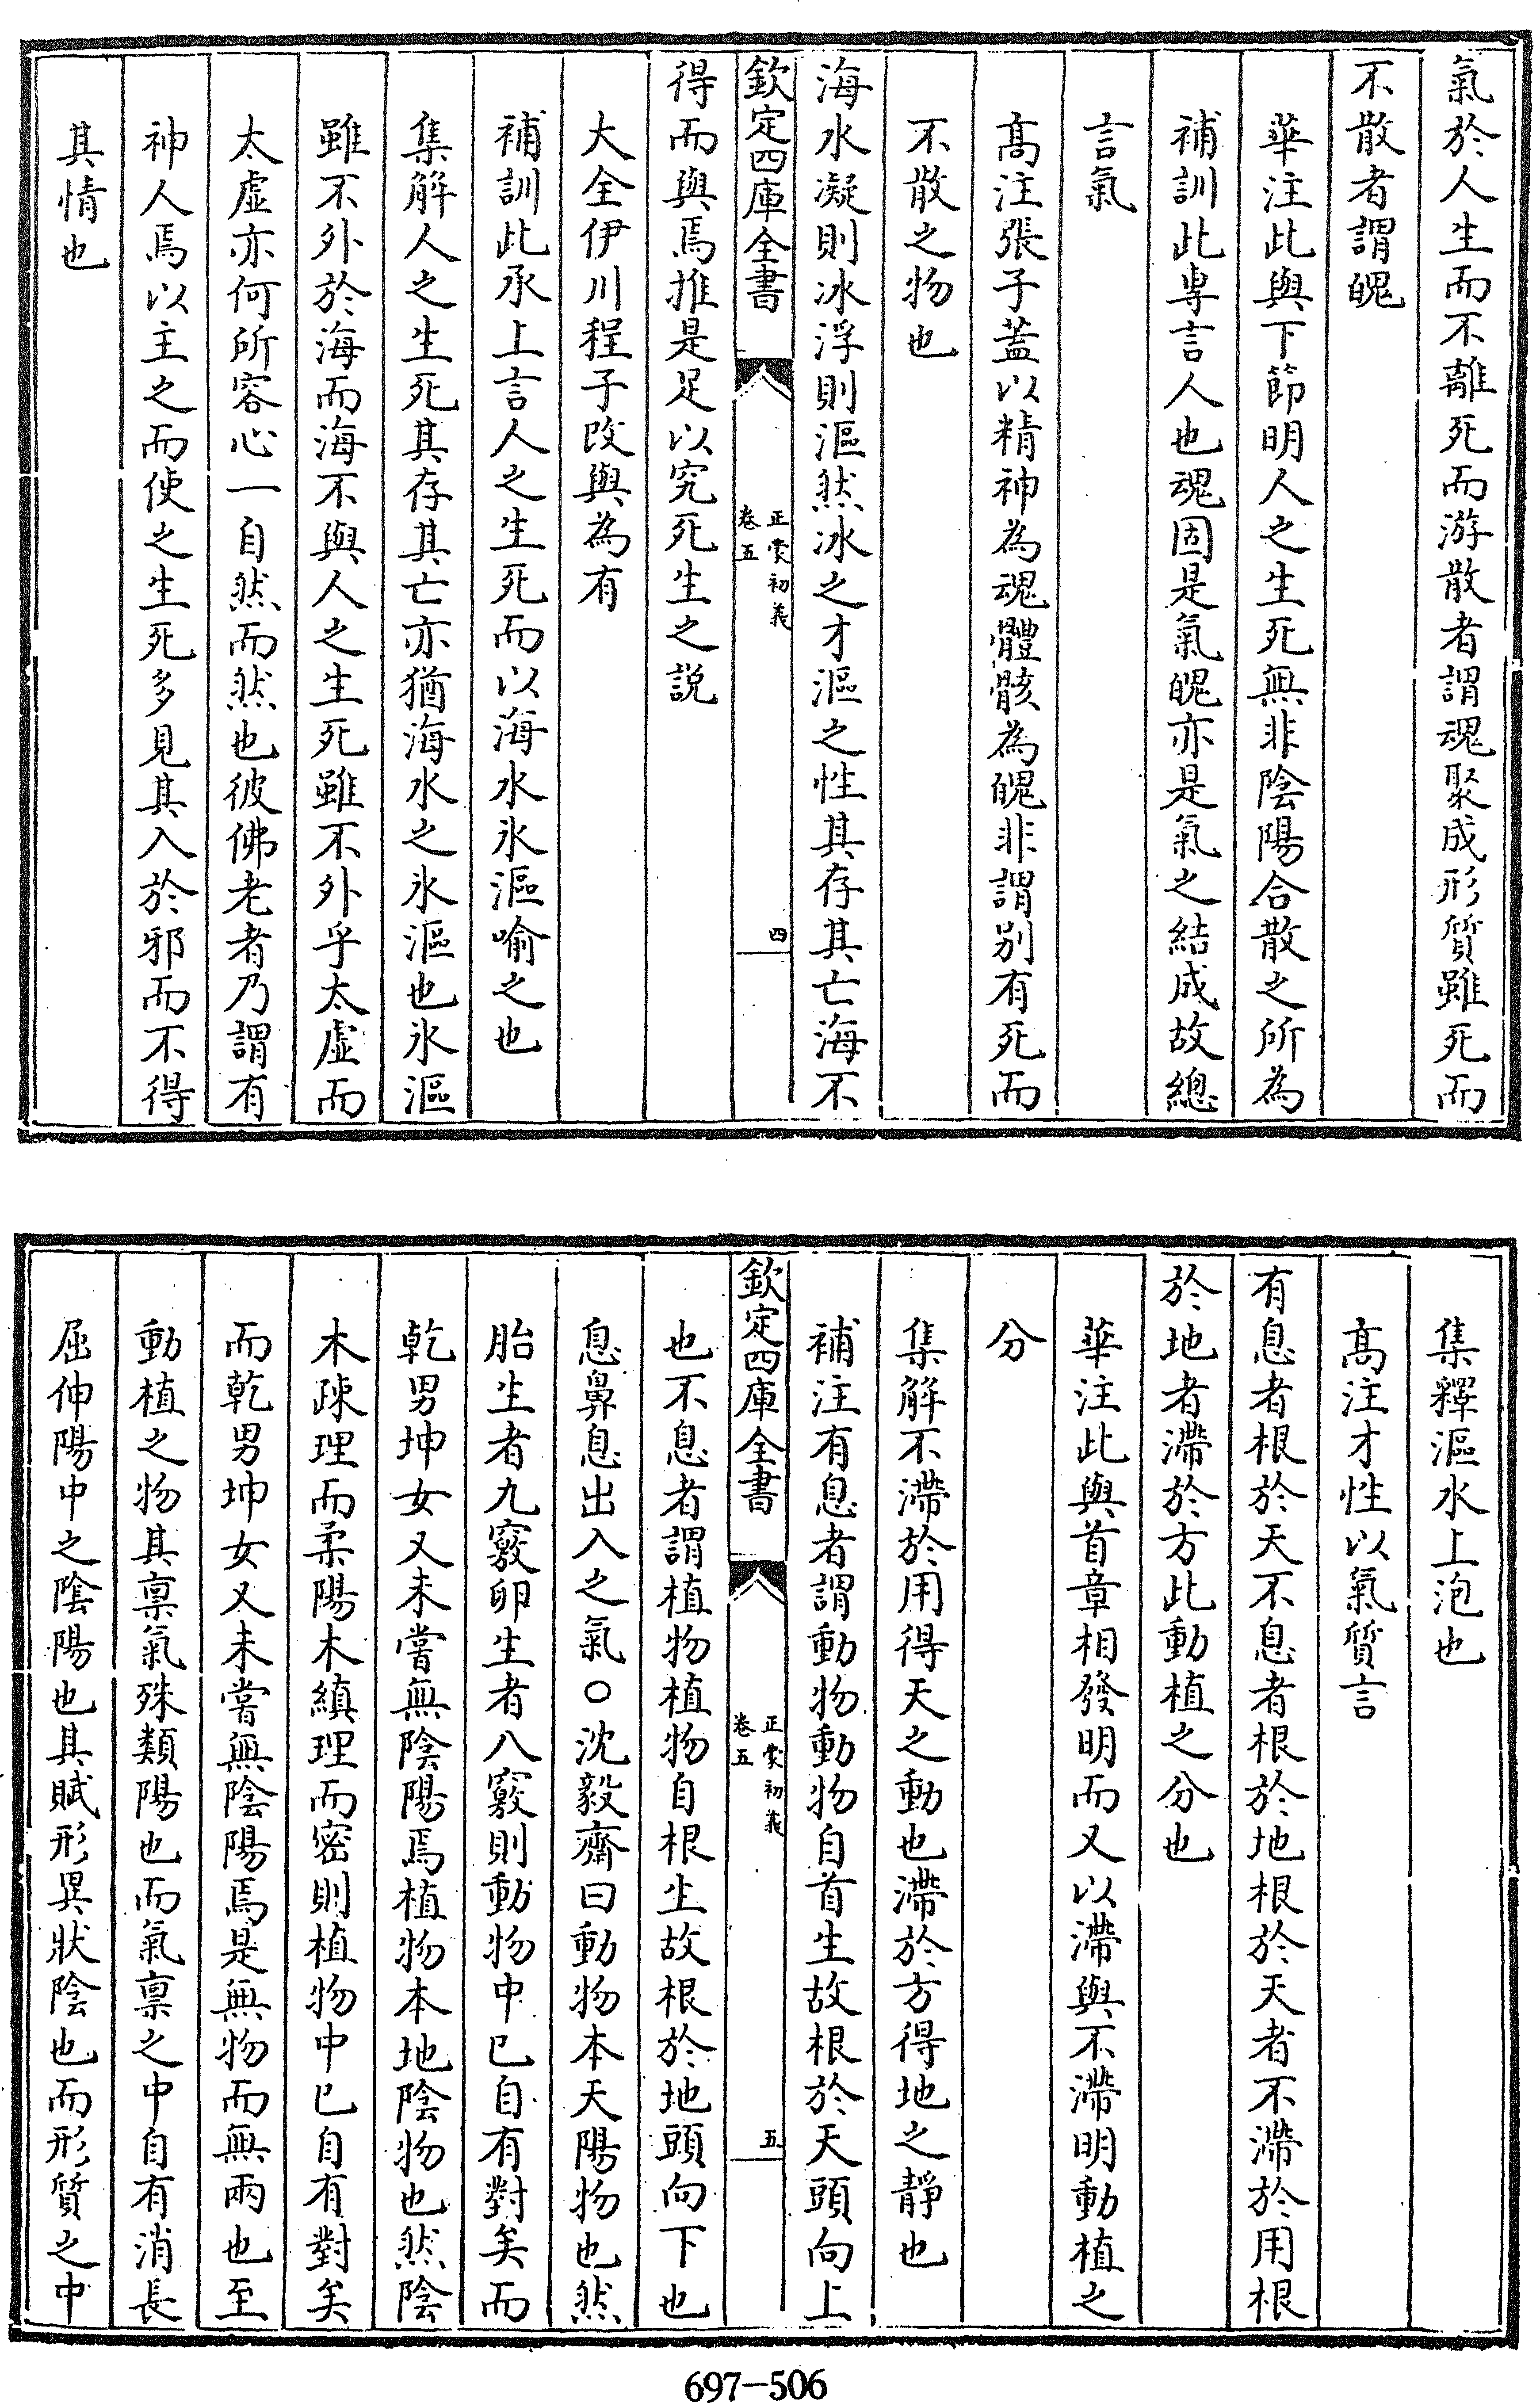 氣於人生而不離死而游散者謂魂聚成形質雖死而
不散者謂魄
華注此與下節明人之生死無非陰陽合散之所為
補訓此專言人也魂固是氣魄亦是氣之結成故總
言氣
髙注張子蓋以精神為魂體骸為魄非謂别有死而
不散之物也
海水凝則冰浮則漚然冰之才漚之性其存其亡海不
欽定四庫全書
正蒙初義
卷五
四
得而與焉推是足以究死生之説
大全伊川程子改與為有
補訓此承上言人之生死而以海水氷漚喻之也
集解人之生死其存其亡亦猶海水之氷漚也氷漚
雖不外於海而海不與人之生死雖不外乎太虛而
太虛亦何所容心一自然而然也彼佛老者乃謂有
神人焉以主之而使之生死多見其入於邪而不得
其情也
集釋漚水上泡也
髙注才性以氣質言
有息者根於天不息者根於地根於天者不滯於用根
於地者滯於方此動植之分也
華注此與首章相發明而又以滯與不滯明動植之
分
集解不滯於用得天之動也滯於方得地之靜也
補注有息者謂動物動物自首生故根於天頭向上
欽定四庫全書
正蒙初義
卷五
五
也不息者謂植物植物自根生故根於地頭向下也
息鼻息出入之氣○沈毅齋曰動物本天陽物也然
胎生者九竅卵生者八竅則動物中已自有對矣而
乾男坤女又未嘗無陰陽焉植物本地陰物也然陰
木疎理而柔陽木縝理而密則植物中已自有對矣
而乾男坤女又未嘗無陰陽焉是無物而無兩也至
動植之物其禀氣殊類陽也而氣禀之中自有消長
屈伸陽中之陰陽也其賦形異狀陰也而形質之中
697-506